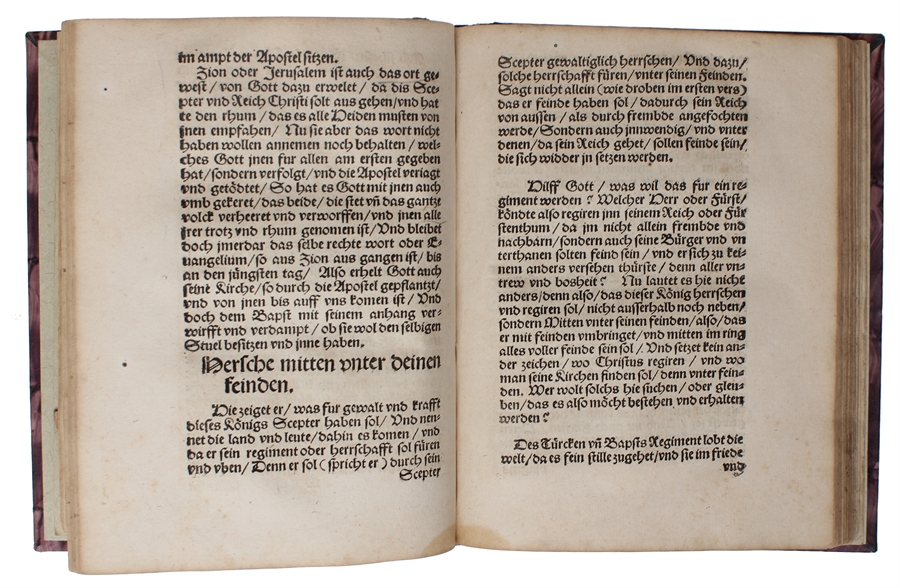 im ampt der Apostel sitzen.
Zion oder Jerusalem ist auch das ort ge-
west / von Gott dazu erwelet / da dis Sce-
pter vnd Reich Christi solt aus gehen / vnd hat
te den rhum / das es alle Heiden musten von
jnen empfahen / Nu sie aber das wort nicht
haben wollen annemen noch behalten / wel-
ches Gott jnen fur allen am ersten gegeben
hat / sondern verfolgt / vnd die Apostel veriagt
vnd getödtet / So hat es Gott mit jnen auch
vmb gekeret / das beide / die stet vn̄ das gantze
volck verheeret vnd verworffen / vnd jnen alle
jrer trotz vnd rhum genomen ist / Vnd bleibet
doch jmerdar das selbe rechte wort oder E-
uangelium / so aus Zion aus gangen ist / bis
an den jüngsten tag / Also erhelt Gott auch
seine Kirche / so durch die Apostel gepflantzt /
vnd von jnen bis auff vns komen ist / Vnd
doch dem Bapst mit seinem anhang ver-
wirfft vnd verdampt / ob sie wol den selbigen
Stuel besitzen vnd jnne haben.
Hersche mitten vnter deinen
feinden.
Hie zeiget er / was fur gewalt vnd krafft
dieses Königs Scepter haben sol / Vnd nen-
net die land vnd leute / dahin es komen / vnd
da er sein regiment oder herrschafft sol füren
vnd vben / Denn er sol (spricht er) durch sein
Scepter
Scepter gewaltiglich herrschen / Vnd dazu /
solche herrschafft füren / vnter seinen Feinden.
Sagt nicht allein (wie droben im ersten vers)
das er feinde haben sol / dadurch sein Reich
von aussen / als durch frembde angefochten
werde / Sondern auch jnnwendig / vnd vnter
denen / da sein Reich gehet / sollen feinde sein /
die sich widder jn setzen werden.
Hilff Gott / was wil das fur ein re-
giment werden? Welcher Herr oder Fürst /
köndte also regiren jnn jeinem Reich oder Für
stenthum / da jm nicht allein frembde vnd
nachbärn / sondern auch seine Bürger vnd vn
terthanen solten feind sein / vnd er sich zu kei-
nem anders versehen thürste / denn aller vn-
trew vnd bosheit? Nu lautet es hie nicht
anders / denn also / das dieser König herrschen
vnd regiren sol / nicht ausserhalb noch neben /
sondern Mitten vnter seinen feinden / also / das
er mit feinden vmbringet / vnd mitten im ring
alles voller feinde sein sol / Vnd setzet kein an-
der zeichen / wo Christus regiren / vnd wo
man seine Kirchen finden sol / denn vnter fein-
den. Wer wolt solchs hie suchen / oder gleu-
ben / das es also möcht bestehen vnd erhalten
werden?
Des Türcken vn̄ Bapsts Regiment lobt die
welt / da es fein stille zugehet / vnd sie im friede
vnd